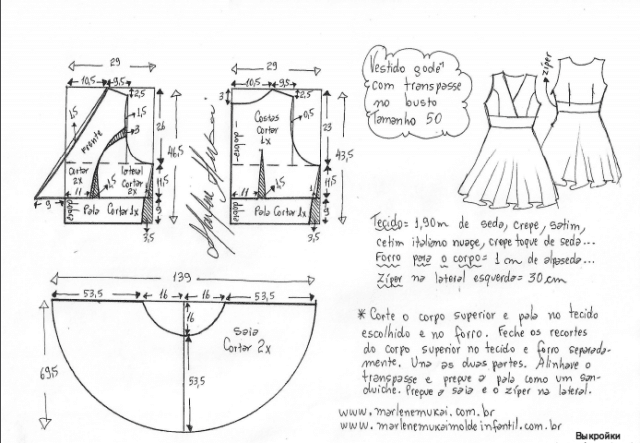 29
10,5
9,5
2,5
1,5
1,5
3
Frente
26
46,5
Cortar
2x
lateral
Cortar
2x
11
1,5
11,5
9
dobra
Pala Cortar 1x
9
3,5
Marlene Mukai
29
10,5
9,5
3
2,5
0,5
Costas
Cortar
1x
dobra
23
43,5
11
1,5
1
11,5
9
dobra
Pala Cortar 1x
3,5
Vestido godê
com transpasse
no busto
Tamanho 50
zíper
Tecido= 1,90m de seda, crepe, satim,
cetim italiano nuage, crepe toque de seda...
Forro para o corpo= 1 cm de alpaseda...
Zíper na lateral esquerda= 30 cm
139
53,5
16
16
53,5
16
Saia
Cortar 2x
69,5
53,5
* Corte o corpo superior e pala no tecido
escolhido e no forro. Feche os recortes
do corpo superior no tecido e forro separada-
mente. Una as duas partes. Alinhave o
transpasse e pregue a pala como um san-
duiche. Pregue a saia e o zíper na lateral.
www.marlenemukai.com.br
www.marlenemukaimoldeinfantil.com.br
Выкройки